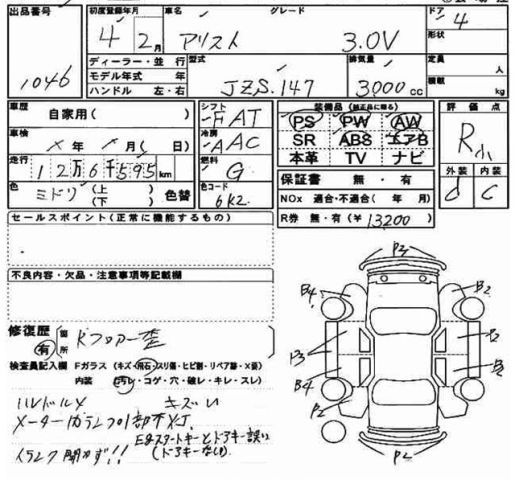 出品番号 初度登録年月 車名 グレード ドア
4 2月 アリスト 3.0V 4
形状
ディーラー・並行 型式 排気量 定員 人
1046 モデル年式 年 JZS.147 3000cc 積載 kg
ハンドル 左・右
車歴 自家用( ) シフト FAT 装備品(純正品に限る) 評価点
PS PW AW
車検 ×年 ×月( 日) 冷房 AAC SR ABS エアB R
本革 TV ナビ
走行 12万6千595km 燃料 G 保証書 無・有 外装 内装
色 ミドリ(上)(下) 色替 色コード 6K2 NOx 適合・不適合( 年 月) d C
R券 無・有(¥13200)
セールスポイント(正常に機能するもの)
不良内容・欠品・注意事項等記載欄
修復歴 有 箇所 Kフロアー歪
検査員記入欄 Fガラス (キズ・飛石・スリ傷・ヒビ割・リペア跡・X要)
内装 (汚レ・コゲ・穴・破レ・キレ・スレ)
ハンドルメ キズレ
メーター内ランプ1部不灯
Egスタートキーとドアキー誤い
(ドアキーなし)
トランク開かず!!
P2
B4 B2
P3 B2
B4 B2
P2
P2